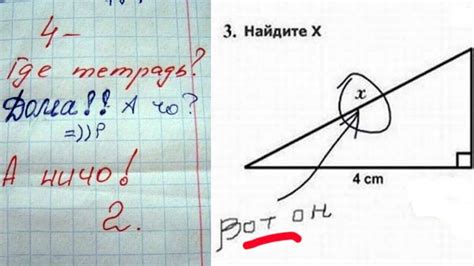 4-
Где тетрадь?
Дома!! А чо?
=))P
А ничо!
2.
3. Найдите X
x
4 cm
Вот он